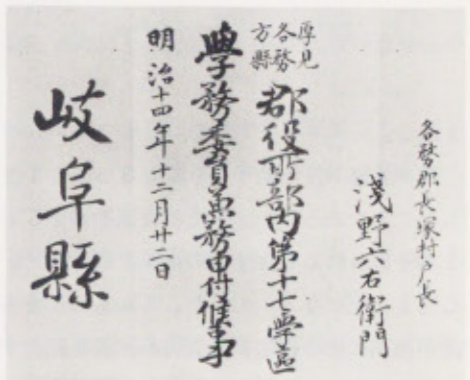 各務郡長塚村戸長
淺野六右衛門
厚見
各務
方縣
郡役所部内第十七学區
學務委員兼務申付候事
明治十四年十二月廿二日
岐阜縣